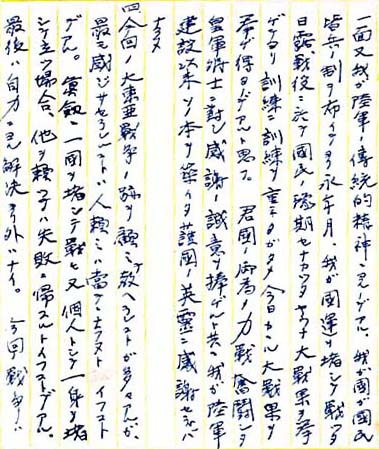 一面又我ガ陸軍ノ傳統的精神ニヨルノデアル、我ガ國ガ國民
皆兵ノ制ヲ布イテヨリ永年月、我ガ國運ヲ堵シテ戰ッタ
日露戰役ニ次グ國民ノ豫期セナカッタヤウナ大戰果ヲ挙
ゲテヨリ訓練ニ訓練ヲ重ネタガタメ今日カヽル大戰果ヲ
挙ゲ得タノデアルト思フ。君國ノ御為メ力戰奮鬪シタ
皇軍將士ニ對シ感謝ノ誠意ヲ捧ゲルト共ニ我ガ陸軍
建設以来ノ本ヲ築イタ護國ノ英靈ニ感謝セネバ
ナラヌ
四今回ノ大東亜戰爭ノ跡ヲ顧ミ教ヘラレルコトガ多々アルガ、
最モ感ジサセラレルコトハ人頼ミハ當テニナラヌトイフコト
デアル。一國ヲ堵シテ戰ヒ又個人トシテ一身ヲ堵
シテ立ツ場合、他ヲ頼ッテハ失敗ニ帰スルトイフコトデアル。
最後ハ自力ニヨル解決ヨリ外ハナイ。今回戰爭ハ